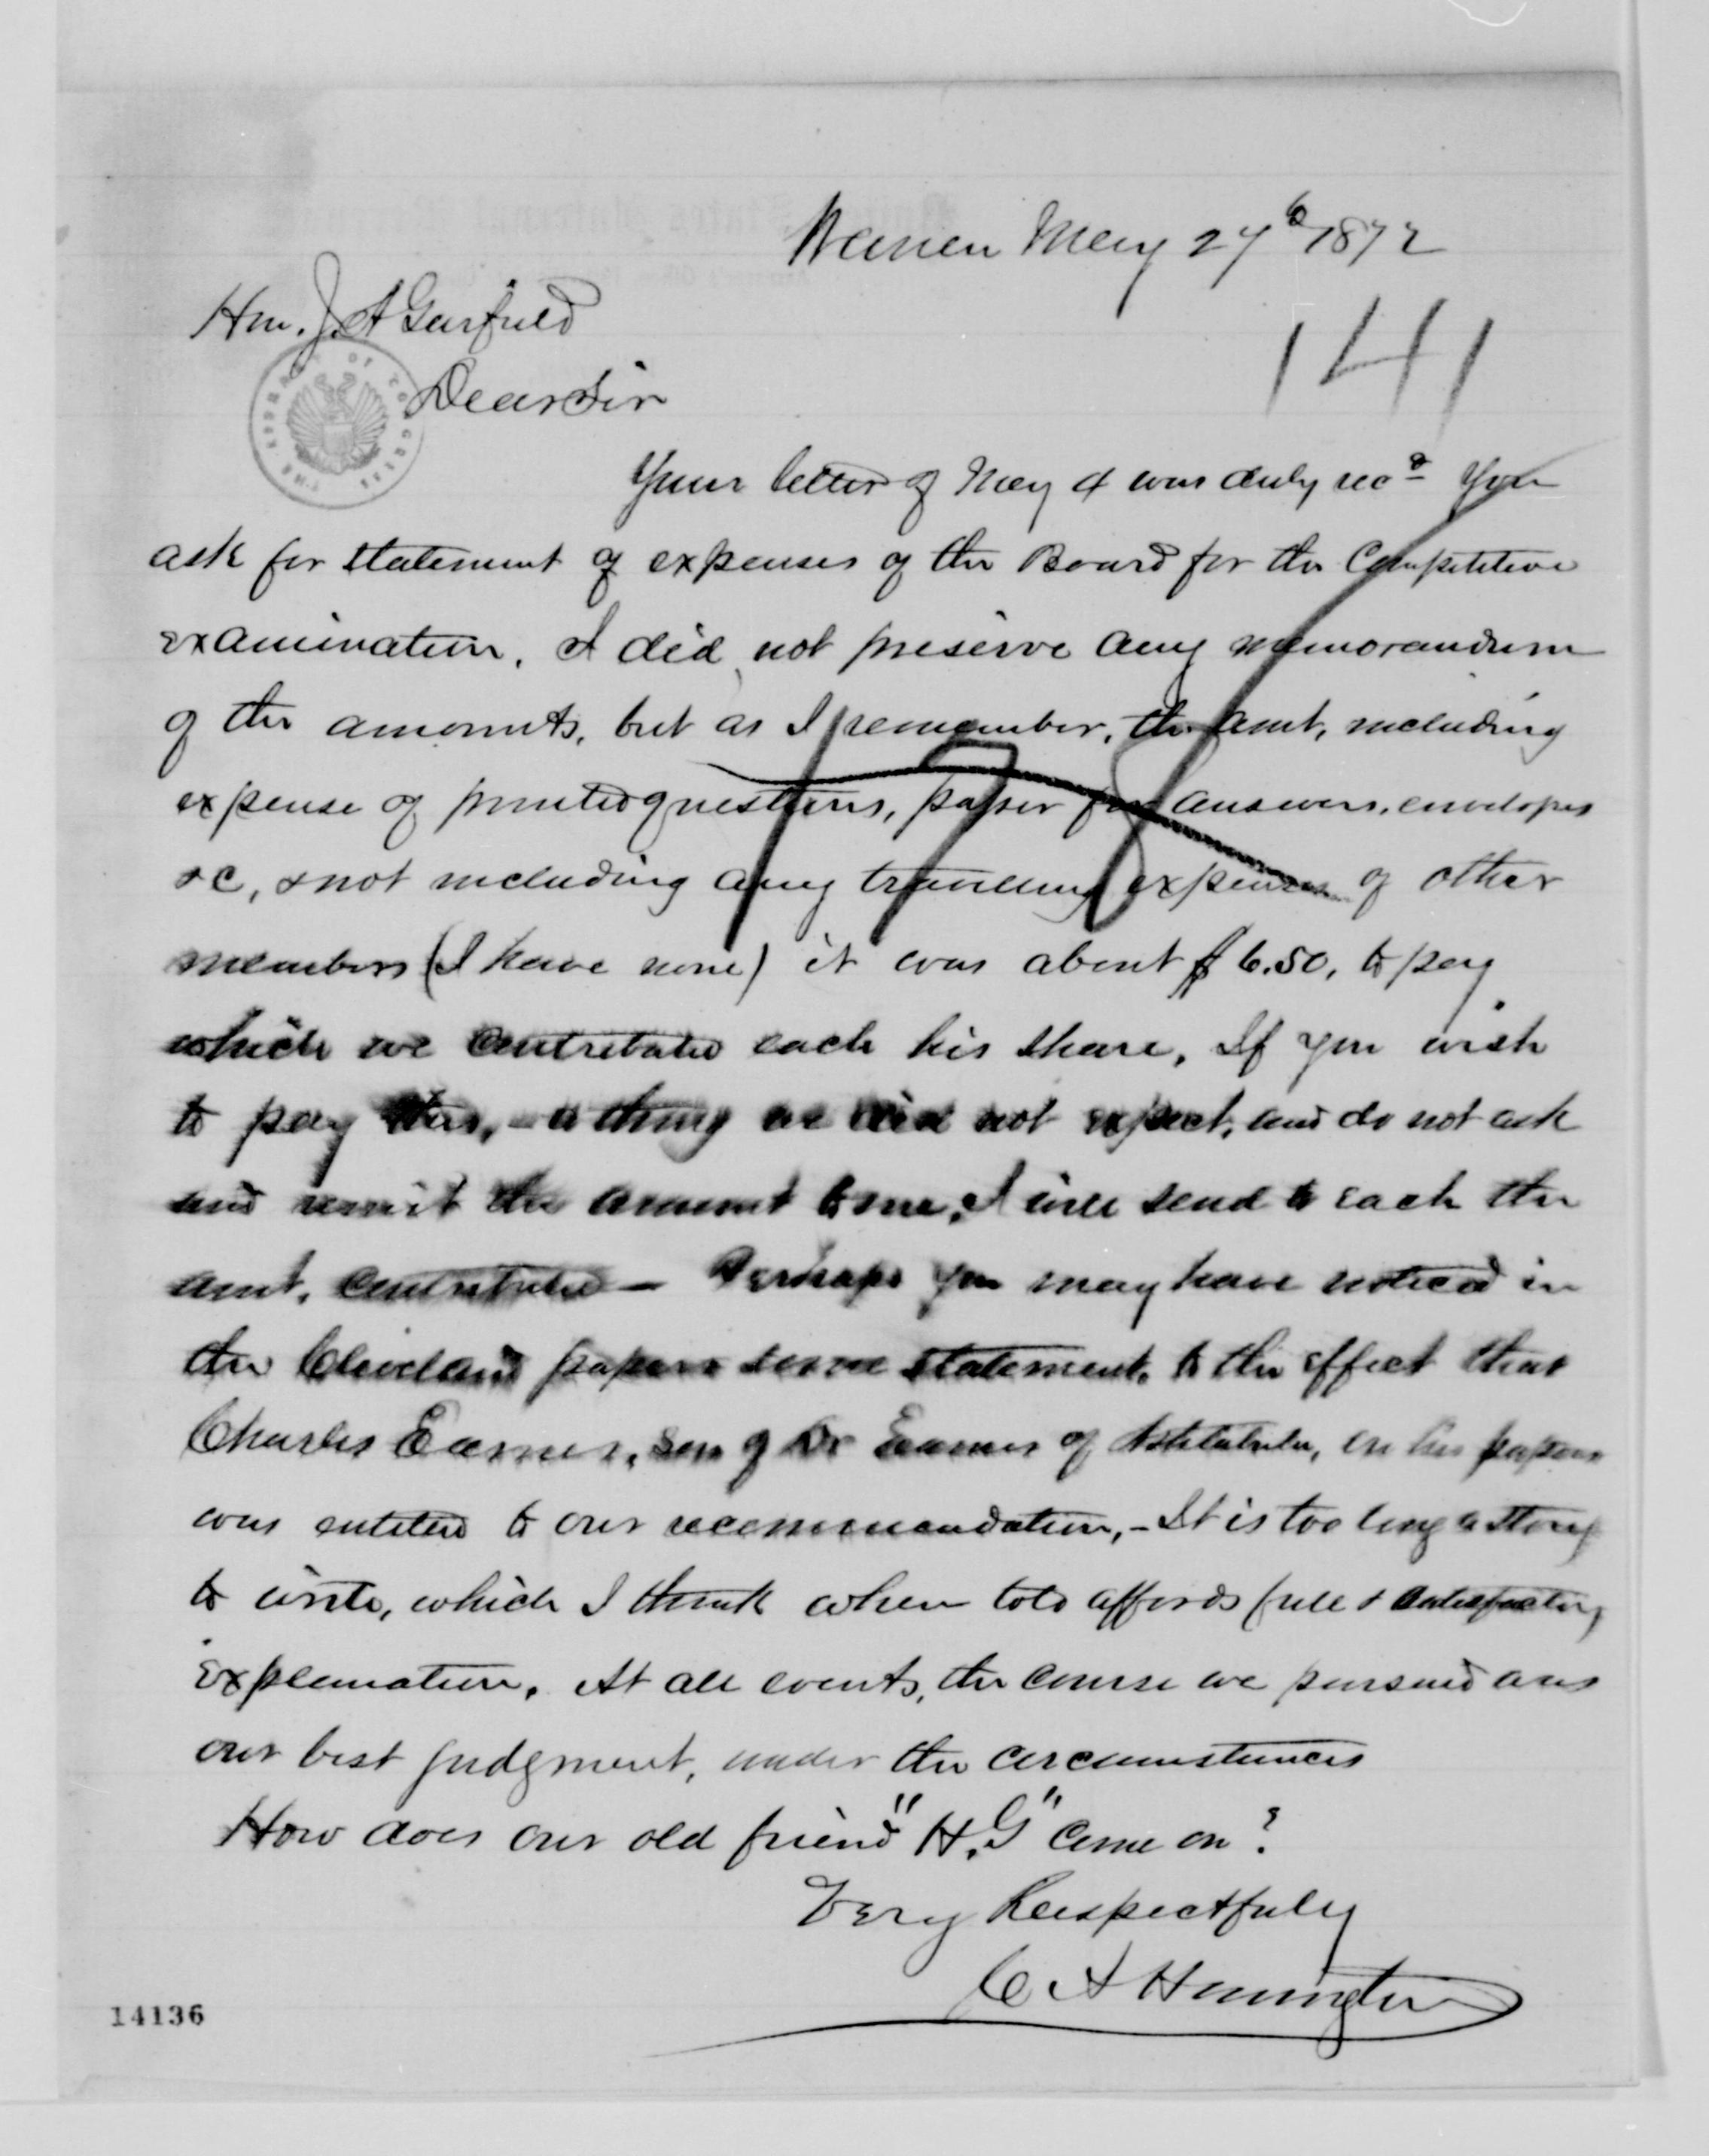 Warren May 27th 1872
141
Hon. J. A Garfield
THE LIBRARY OF CONGRESS
Dear Sir
Your letter of May 4 was duly recd You
ask for statement of expenses of the Board for the Competitive
examination. I did not preserve any memorandum
of the amounts, but as I remember, the amt, including
expense of printed questions, paper for answers, envelopes
&c, & not including any travelling expenses of other
members (I have none) it was about $6.50, to pay
which we contributed each his share. If you wish
to pay this, - a thing we did not expect, and do not ask
and remit the amount to me, I will send to each the
amt. contributed - Perhaps you may have noticed in
the Cleveland papers some statement, to the effect that
Charles Eames, son of Dr Eames of Ashtabula, on his papers
was entitled to our recommendation, - It is too long a story
to write, which I think when told affords full & satisfactory
explanation. At all events, the course we pursued was
our best judgment, under the circumstances
How does our old friend "H.G" come on?
Very Respectfully
C A Harrington
14136